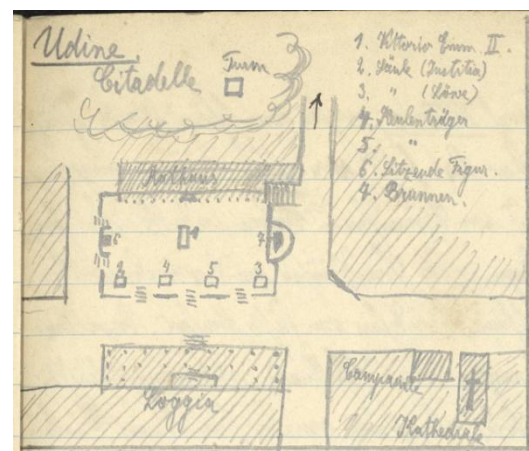 Udine.
Citadelle
Turm
1. Vittorio Eman. II.
2. Säule (Justitia)
3. " (Löwe)
4. Keulenträger
5. "
6. Sitzende Figur.
7. Brunnen.
Rathaus
6
1
7
2 4 5 3
Loggia
Campanile
Kathedrale